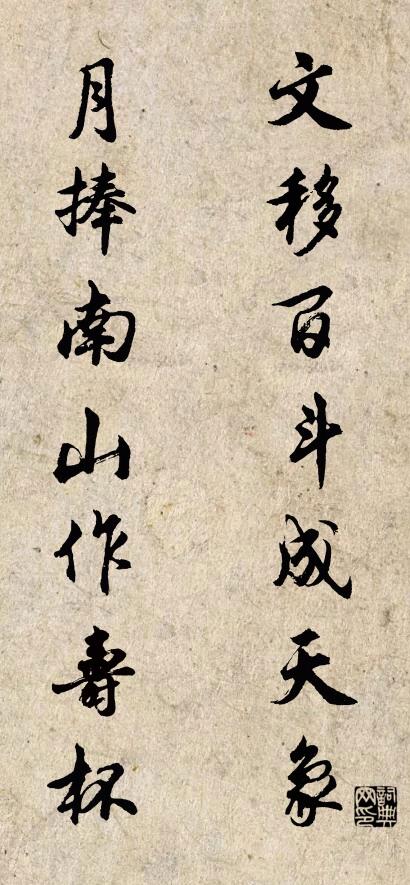 文移百斗成天象
月捧南山作壽杯
詞典網印